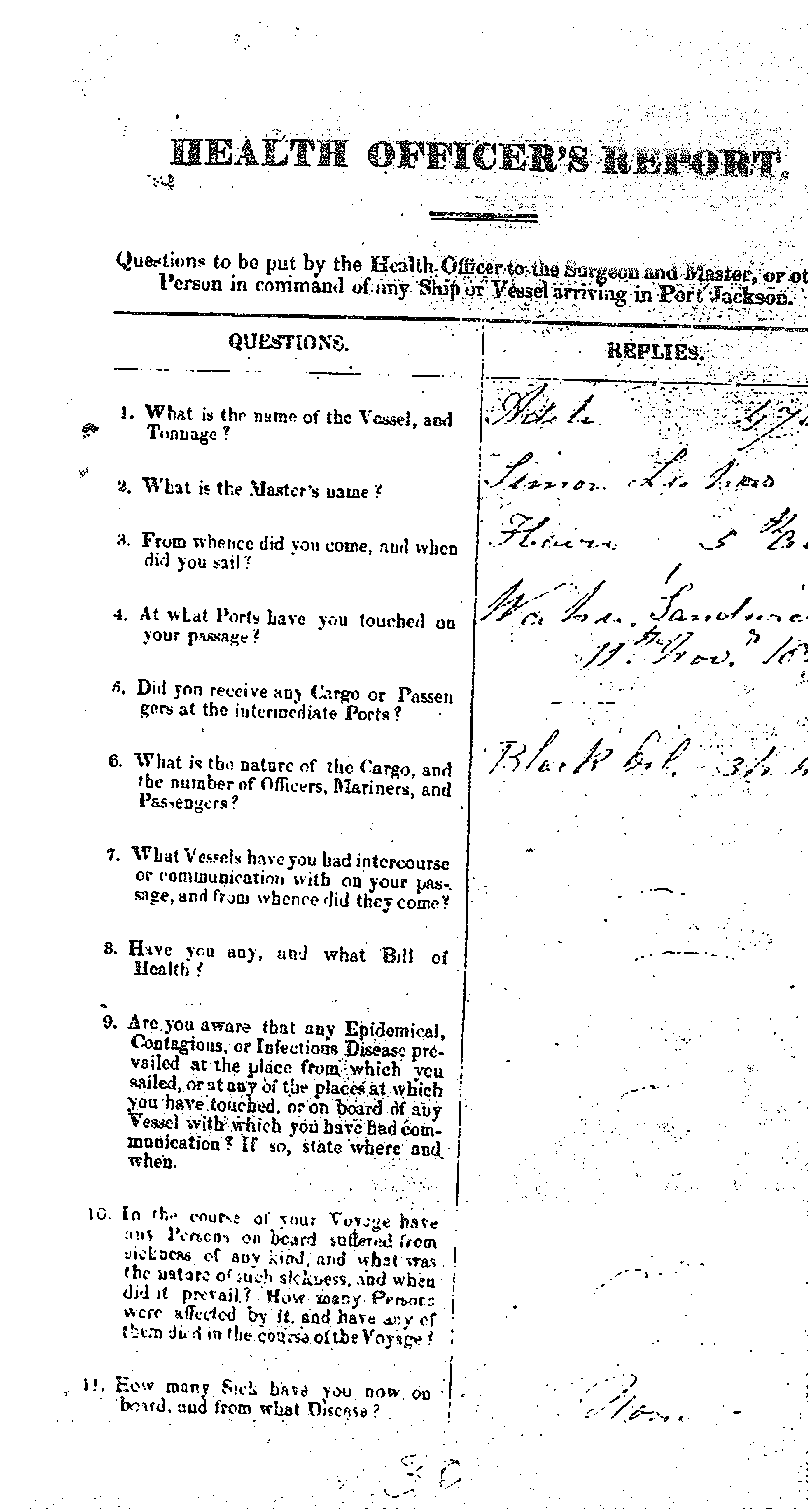 HEALTH OFFICER'S REPORT.
Questions to be put by the Health Officer to the Surgeon and Master, or ot
Person in command of any Ship or Vessel arriving in Port Jackson.
QUESTIONS.
REPLIES.
1. What is the name of the Vessel, and
Tonnage?
2. What is the Master's name?
Simon
3. From whence did you come, and when
did you sail?
Havre 5th
4. At what Ports have you touched on
your passage?
11th Nov.r
5. Did you receive any Cargo or Passen
gers at the intermediate Ports?
6. What is the nature of the Cargo, and
the number of Officers, Mariners, and
Passengers?
Black Oil.
7. What Vessels have you had intercourse
or communication with on your pas-
sage, and from whence did they come?
8. Have you any, and what Bill of
Health?
9. Are you aware that any Epidemical,
Contagious, or Infectious Disease pre-
vailed at the place from which you
sailed, or at any of the places at which
you have touched, or on board of any
Vessel with which you have had com-
munication? If so, state where and
when.
10. In the course of your Voyage have
any Persons on board suffered from
sickness of any kind, and what was
the nature of such sickness, and when
did it prevail? How many Persons
were affected by it, and have any of
them died in the course of the Voyage?
11. How many Sick have you now on
board, and from what Disease?
None